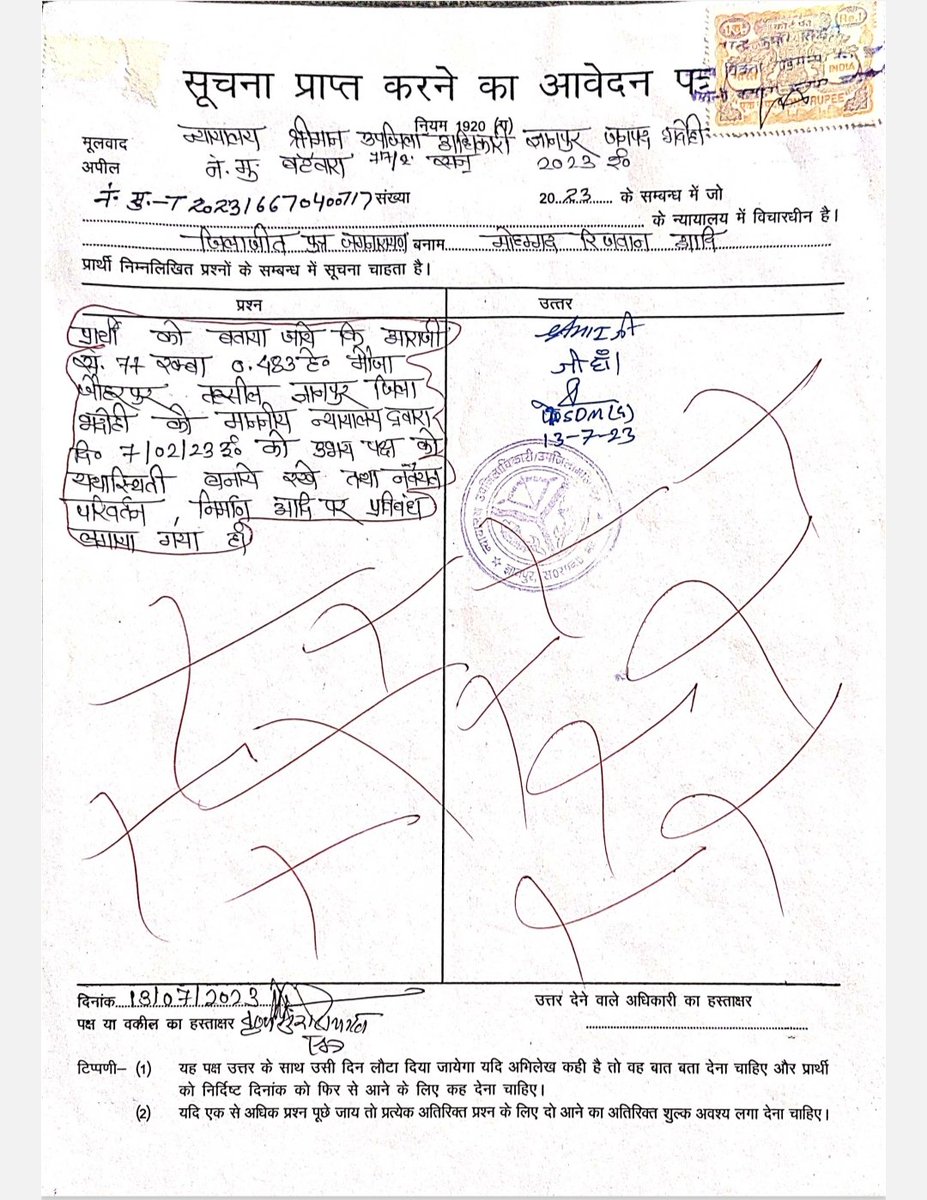 सूचना प्राप्त करने का आवेदन पत्र
नियम 1920 (ए)
मूलवाद न्यायालय श्रीमान उपजिला अधिकारी ज्ञानपुर जनपद भदोही
अपील नं. मु. बंटवारा 2023 ई०
नं. मु.-T 202316670400717 संख्या 2023 के सम्बन्ध में जो
के न्यायालय में विचारधीन है।
जिलाजीत पुत्र बनाम मोहम्मद रिजवान आदि
प्रार्थी निम्नलिखित प्रश्नों के सम्बन्ध में सूचना चाहता है।
प्रश्न उत्तर
प्रार्थी को बताया जाये कि आराजी
सं. 77 रकबा 0.483हे० मौजा
जौहरपुर तहसील ज्ञानपुर जिला
भदोही को माननीय न्यायालय द्वारा
दि० 7/02/23 ई० को उभय पक्ष को
यथास्थिती बनाये रखे तथा
परिवर्तन, निर्माण आदि पर प्रतिबंध
लगाया गया है।
जी हाँ।
SDM(G)
13-7-23
दिनांक 13/07/2023
पक्ष या वकील का हस्ताक्षर
उत्तर देने वाले अधिकारी का हस्ताक्षर
टिप्पणी– (1) यह पक्ष उत्तर के साथ उसी दिन लौटा दिया जायेगा यदि अभिलेख कही है तो वह बात बता देना चाहिए और प्रार्थी
को निर्दिष्ट दिनांक को फिर से आने के लिए कह देना चाहिए।
(2) यदि एक से अधिक प्रश्न पूछे जाय तो प्रत्येक अतिरिक्त प्रश्न के लिए दो आने का अतिरिक्त शुल्क अवश्य लगा देना चाहिए।
INDIA
RUPEE